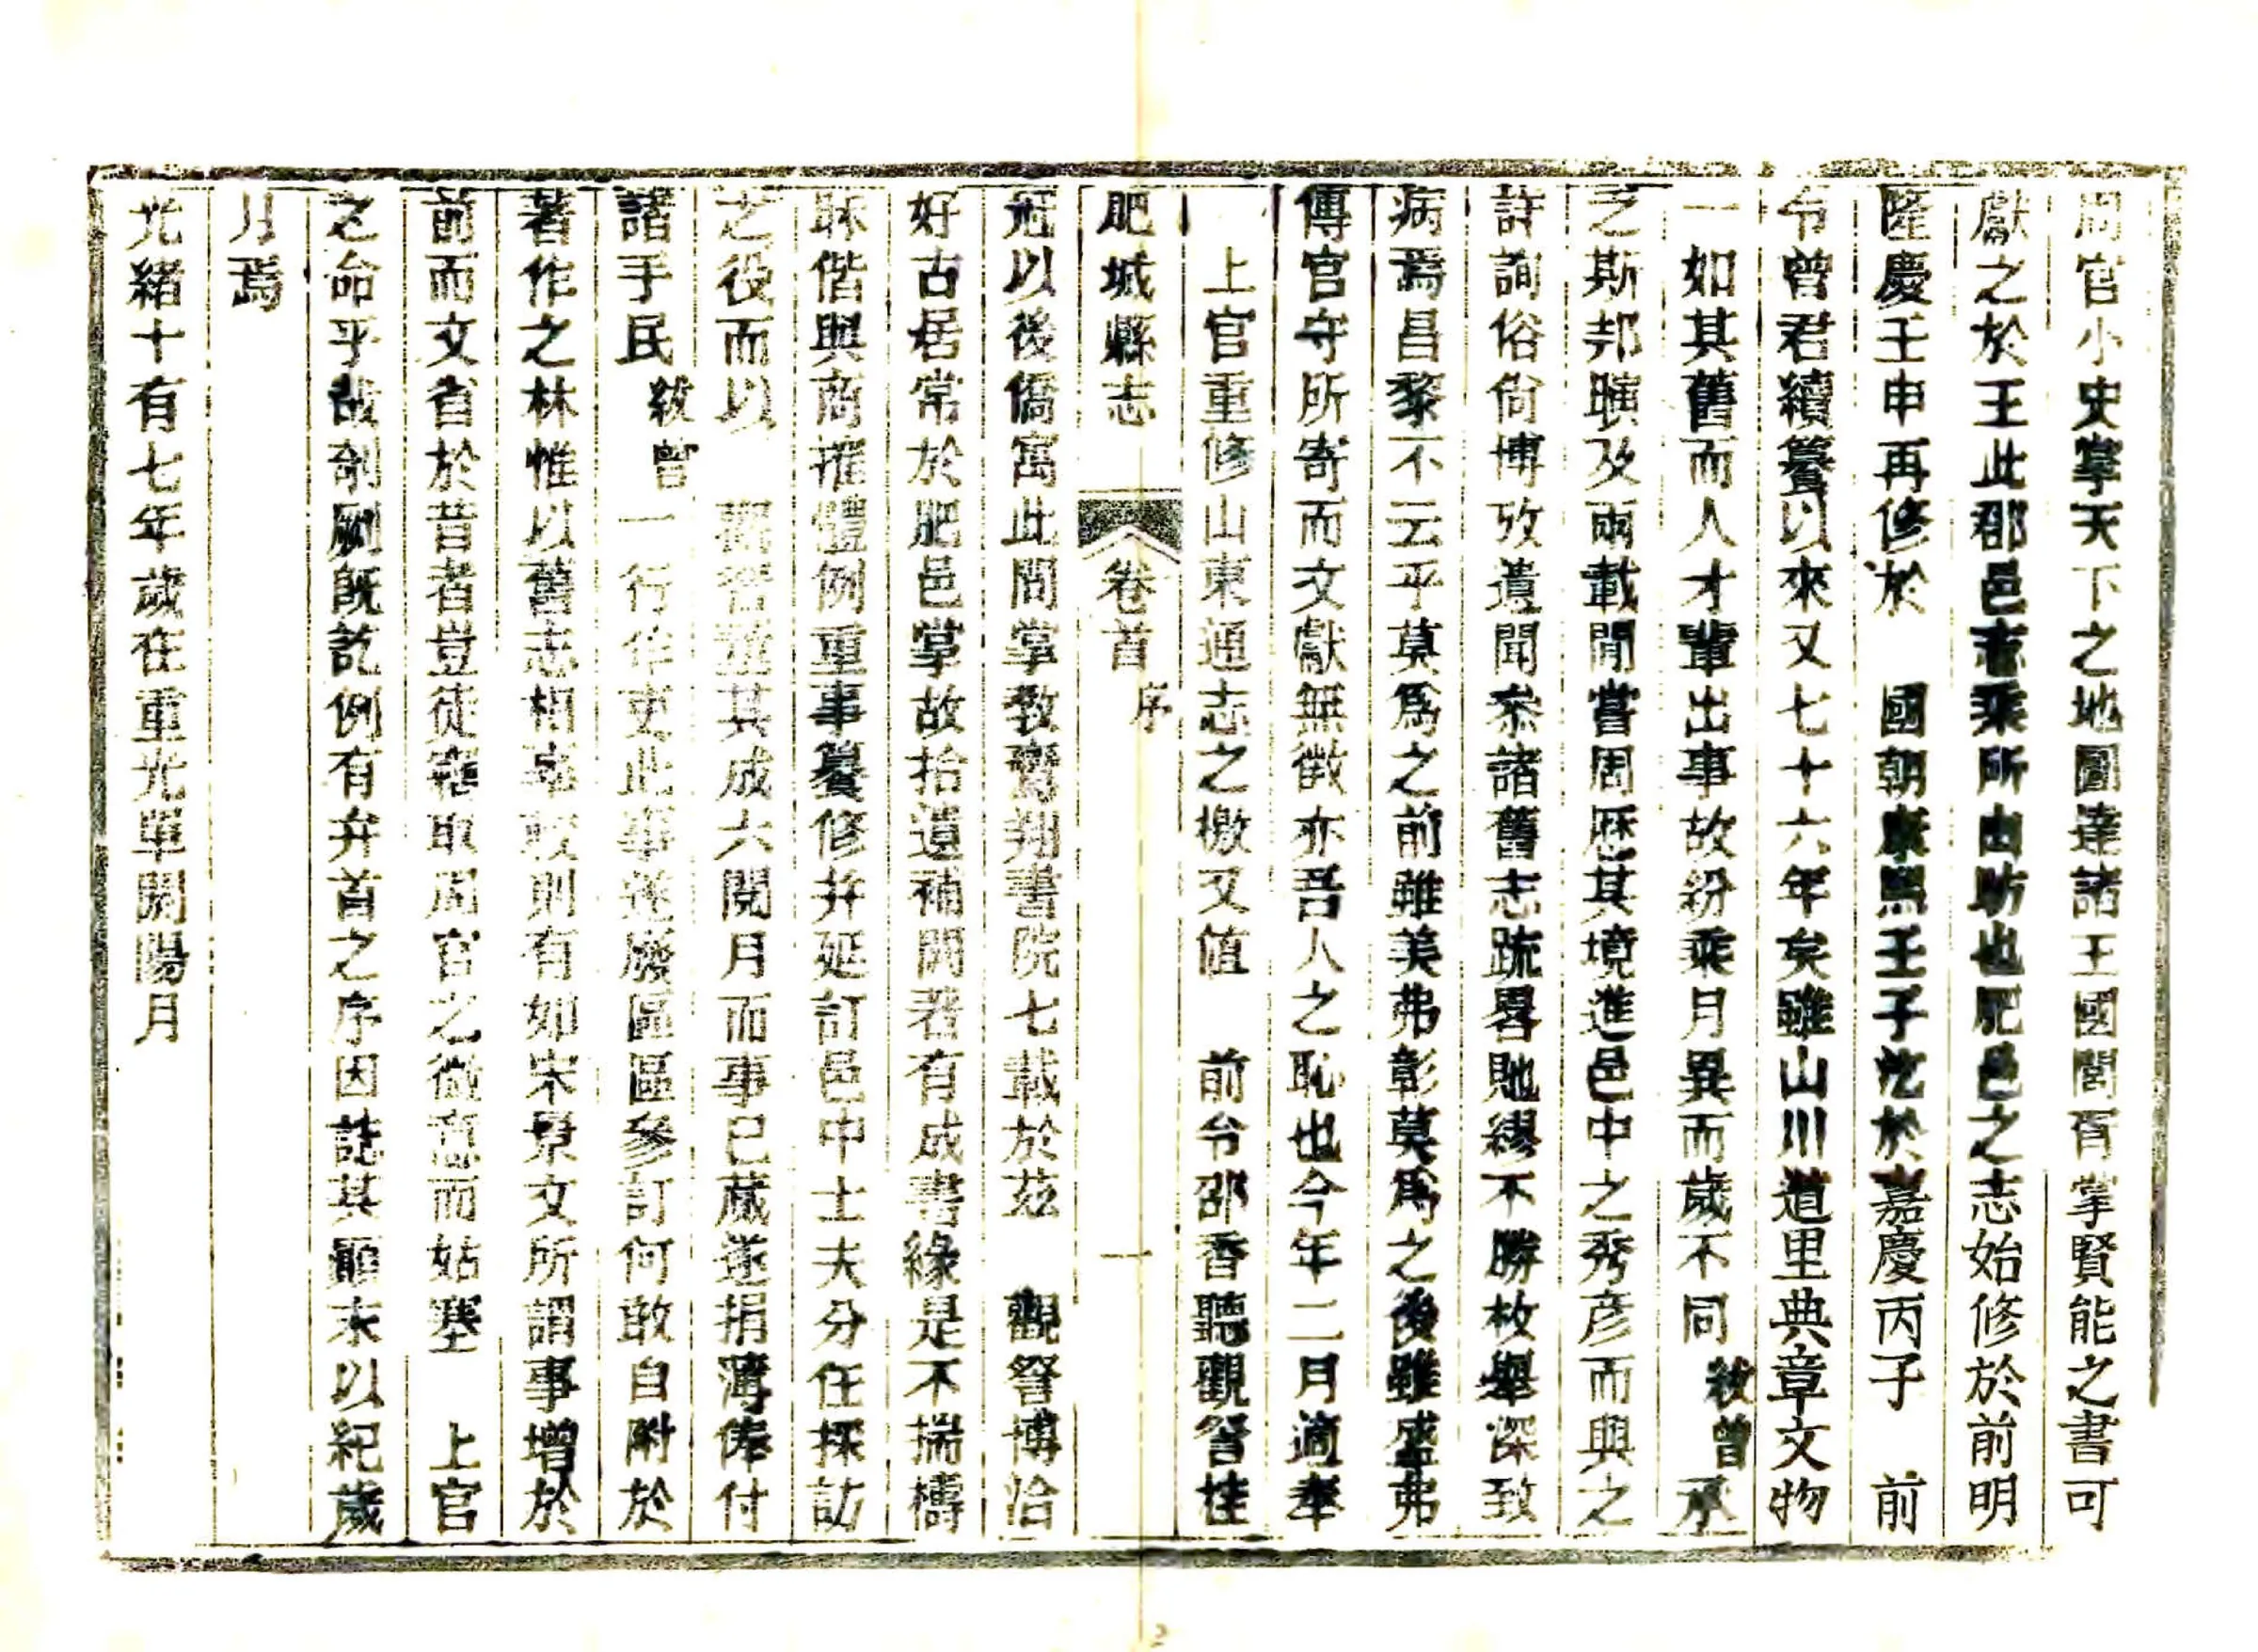 周官小史掌天下之地圖達諸王國閭胥掌賢能之書可
獻之於王此郡邑志乘所由昉也肥邑之志始修於前明
隆慶壬申再修於 國朝康熙壬子訖於嘉慶丙子 前
令曾君續纂以來又七十六年矣雖山川道里典章文物
一如其舊而人才輩出事故紛乘月異而歲不同 紱曾承
乏斯邦瞚及兩載閒嘗周歷其境進邑中之秀彥而與之
諮詢俗尚博攷遺聞參諸舊志疏畧貤繆不勝枚舉深致
病焉昌黎不云乎莫爲之前雖美弗彰莫爲之後雖盛弗
傳官守所寄而文獻無徵亦吾人之恥也今年二月適奉
上官重修山東通志之檄又值 前令邵香聽觀詧桂
肥城縣志 卷首 序 一
冠以後僑寓此間掌敎鸞翔書院七載於茲 觀詧博洽
好古居常於肥邑掌故拾遺補闕著有成書緣是不揣檮
昧偕與商搉體例重事纂修幷延訂邑中士夫分任採訪
之役而以 觀詧董其成六閱月而事已蕆遂捐薄俸付
諸手民 紱曾 一行作吏此事遂廢區區參訂何敢自附於
著作之林惟以舊志相寧較則有如宋景文所謂事增於
前而文省於昔者豈徒竊取周官之微意而姑塞 上官
之命乎哉剞劂旣訖例有弁首之序因誌其顚末以紀歲
月焉
光緒十有七年歲在重光單閼陽月